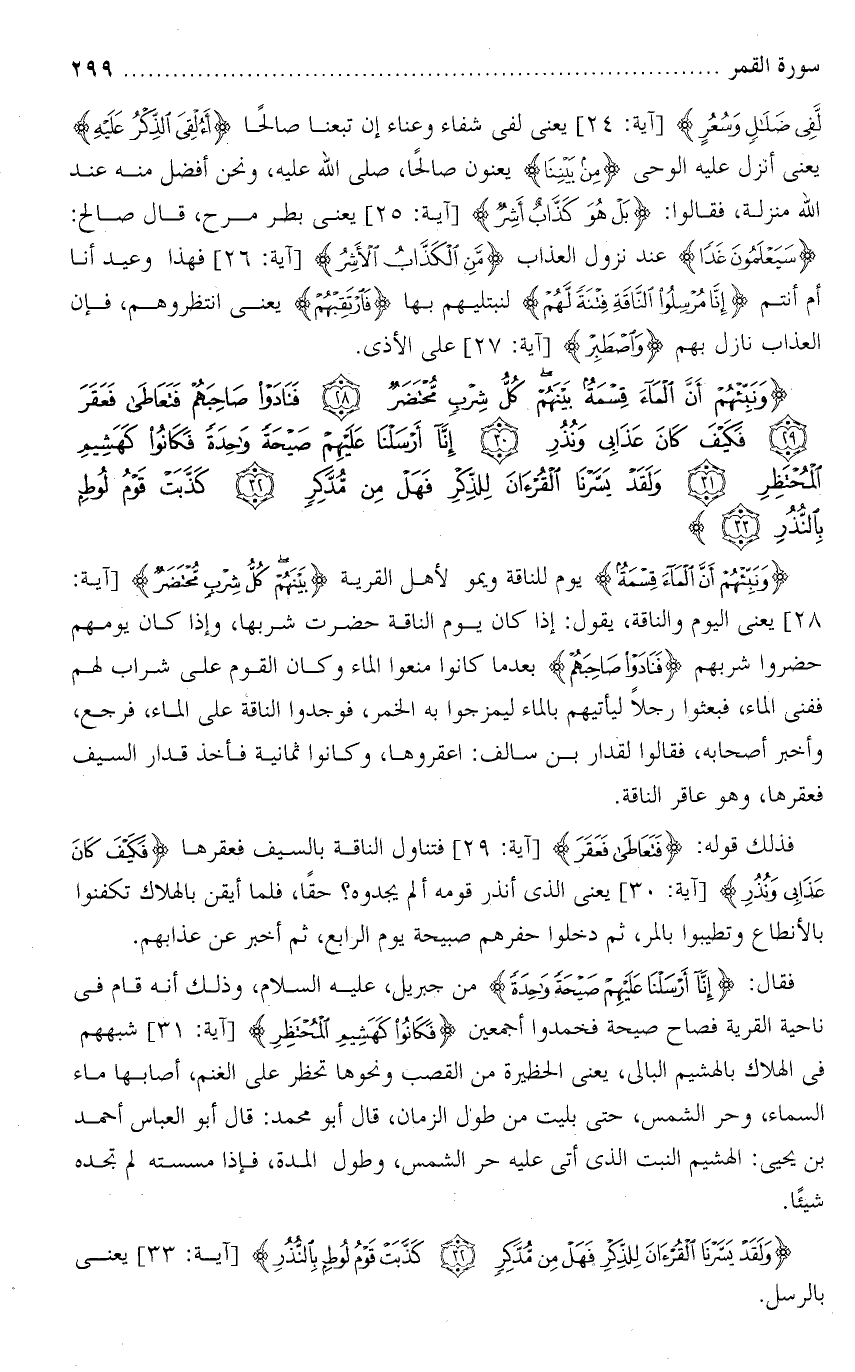 سورة القمر ........................................................................ ٢٩٩
لَّفِى ضَلَـٰلٍ وَسُعُرٍ﴾ [آية: ٢٤] يعنى لفى شفاء وعناء إن تبعنا صالحًا ﴿أَءُلْقِىَ ٱلذِّكْرُ عَلَيْهِ﴾
يعنى أنزل عليه الوحى ﴿مِنۢ بَيْنِنَا﴾ يعنون صالحًا، صلى الله عليه، ونحن أفضل منه عند
الله منزلة، فقالوا: ﴿بَلْ هُوَ كَذَّابٌ أَشِرٌ﴾ [آية: ٢٥] يعنى بطر مرح، قال صالح:
﴿سَيَعْلَمُونَ غَدًا﴾ عند نزول العذاب ﴿مَّنِ ٱلْكَذَّابُ ٱلْأَشِرُ﴾ [آية: ٢٦] فهذا وعيد أنا
أم أنتم ﴿إِنَّا مُرْسِلُوا۟ ٱلنَّاقَةِ فِتْنَةً لَّهُمْ﴾ لنبتليهم بها ﴿فَٱرْتَقِبْهُمْ﴾ يعنى انتظروهم، فإن
العذاب نازل بهم ﴿وَٱصْطَبِرْ﴾ [آية: ٢٧] على الأذى.
﴿وَنَبِّئْهُمْ أَنَّ ٱلْمَآءَ قِسْمَةٌۢ بَيْنَهُمْ ۖ كُلُّ شِرْبٍ مُّحْتَضَرٌ ٢٨ فَنَادَوْا۟ صَاحِبَهُمْ فَتَعَاطَىٰ فَعَقَرَ
٢٩ فَكَيْفَ كَانَ عَذَابِى وَنُذُرِ ٣٠ إِنَّآ أَرْسَلْنَا عَلَيْهِمْ صَيْحَةً وَٰحِدَةً فَكَانُوا۟ كَهَشِيمِ
ٱلْمُحْتَظِرِ ٣١ وَلَقَدْ يَسَّرْنَا ٱلْقُرْءَانَ لِلذِّكْرِ فَهَلْ مِن مُّدَّكِرٍ ٣٢ كَذَّبَتْ قَوْمُ لُوطٍۭ
بِٱلنُّذُرِ ٣٣﴾
﴿وَنَبِّئْهُمْ أَنَّ ٱلْمَآءَ قِسْمَةٌۢ﴾ يوم للناقة ويمو لأهل القرية ﴿بَيْنَهُمْ ۖ كُلُّ شِرْبٍ مُّحْتَضَرٌ﴾ [آية:
٢٨] يعنى اليوم والناقة، يقول: إذا كان يوم الناقة حضرت شربها، وإذا كان يومهم
حضروا شربهم ﴿فَنَادَوْا۟ صَاحِبَهُمْ﴾ بعدما كانوا منعوا الماء وكان القوم على شراب لهم
ففنى الماء، فبعثوا رجلاً ليأتيهم بالماء ليمزجوا به الخمر، فوجدوا الناقة على الماء، فرجع،
وأخبر أصحابه، فقالوا لقدار بن سالف: اعقروها، وكانوا ثمانية فأخذ قدار السيف
فعقرها، وهو عاقر الناقة.
فذلك قوله: ﴿فَتَعَاطَىٰ فَعَقَرَ﴾ [آية: ٢٩] فتناول الناقة بالسيف فعقرها ﴿فَكَيْفَ كَانَ
عَذَابِى وَنُذُرِ﴾ [آية: ٣٠] يعنى الذى أنذر قومه ألم يجدوه؟ حقًا، فلما أيقن بالهلاك تكفنوا
بالأنطاع وتطيبوا بالمر، ثم دخلوا حفرهم صبيحة يوم الرابع، ثم أخبر عن عذابهم.
فقال: ﴿إِنَّآ أَرْسَلْنَا عَلَيْهِمْ صَيْحَةً وَٰحِدَةً﴾ من جبريل، عليه السلام، وذلك أنه قام فى
ناحية القرية فصاح صيحة فخمدوا أجمعين ﴿فَكَانُوا۟ كَهَشِيمِ ٱلْمُحْتَظِرِ﴾ [آية: ٣١] شبههم
فى الهلاك بالهشيم البالى، يعنى الحظيرة من القصب ونحوها تحظر على الغنم، أصابها ماء
السماء، وحر الشمس، حتى بليت من طول الزمان، قال أبو محمد: قال أبو العباس أحمد
بن يحيى: الهشيم النبت الذى أتى عليه حر الشمس، وطول المدة، فإذا مسسته لم تجده
شيئًا.
﴿وَلَقَدْ يَسَّرْنَا ٱلْقُرْءَانَ لِلذِّكْرِ فَهَلْ مِن مُّدَّكِرٍ ٣٢ كَذَّبَتْ قَوْمُ لُوطٍۭ بِٱلنُّذُرِ﴾ [آية: ٣٣] يعنى
بالرسل.